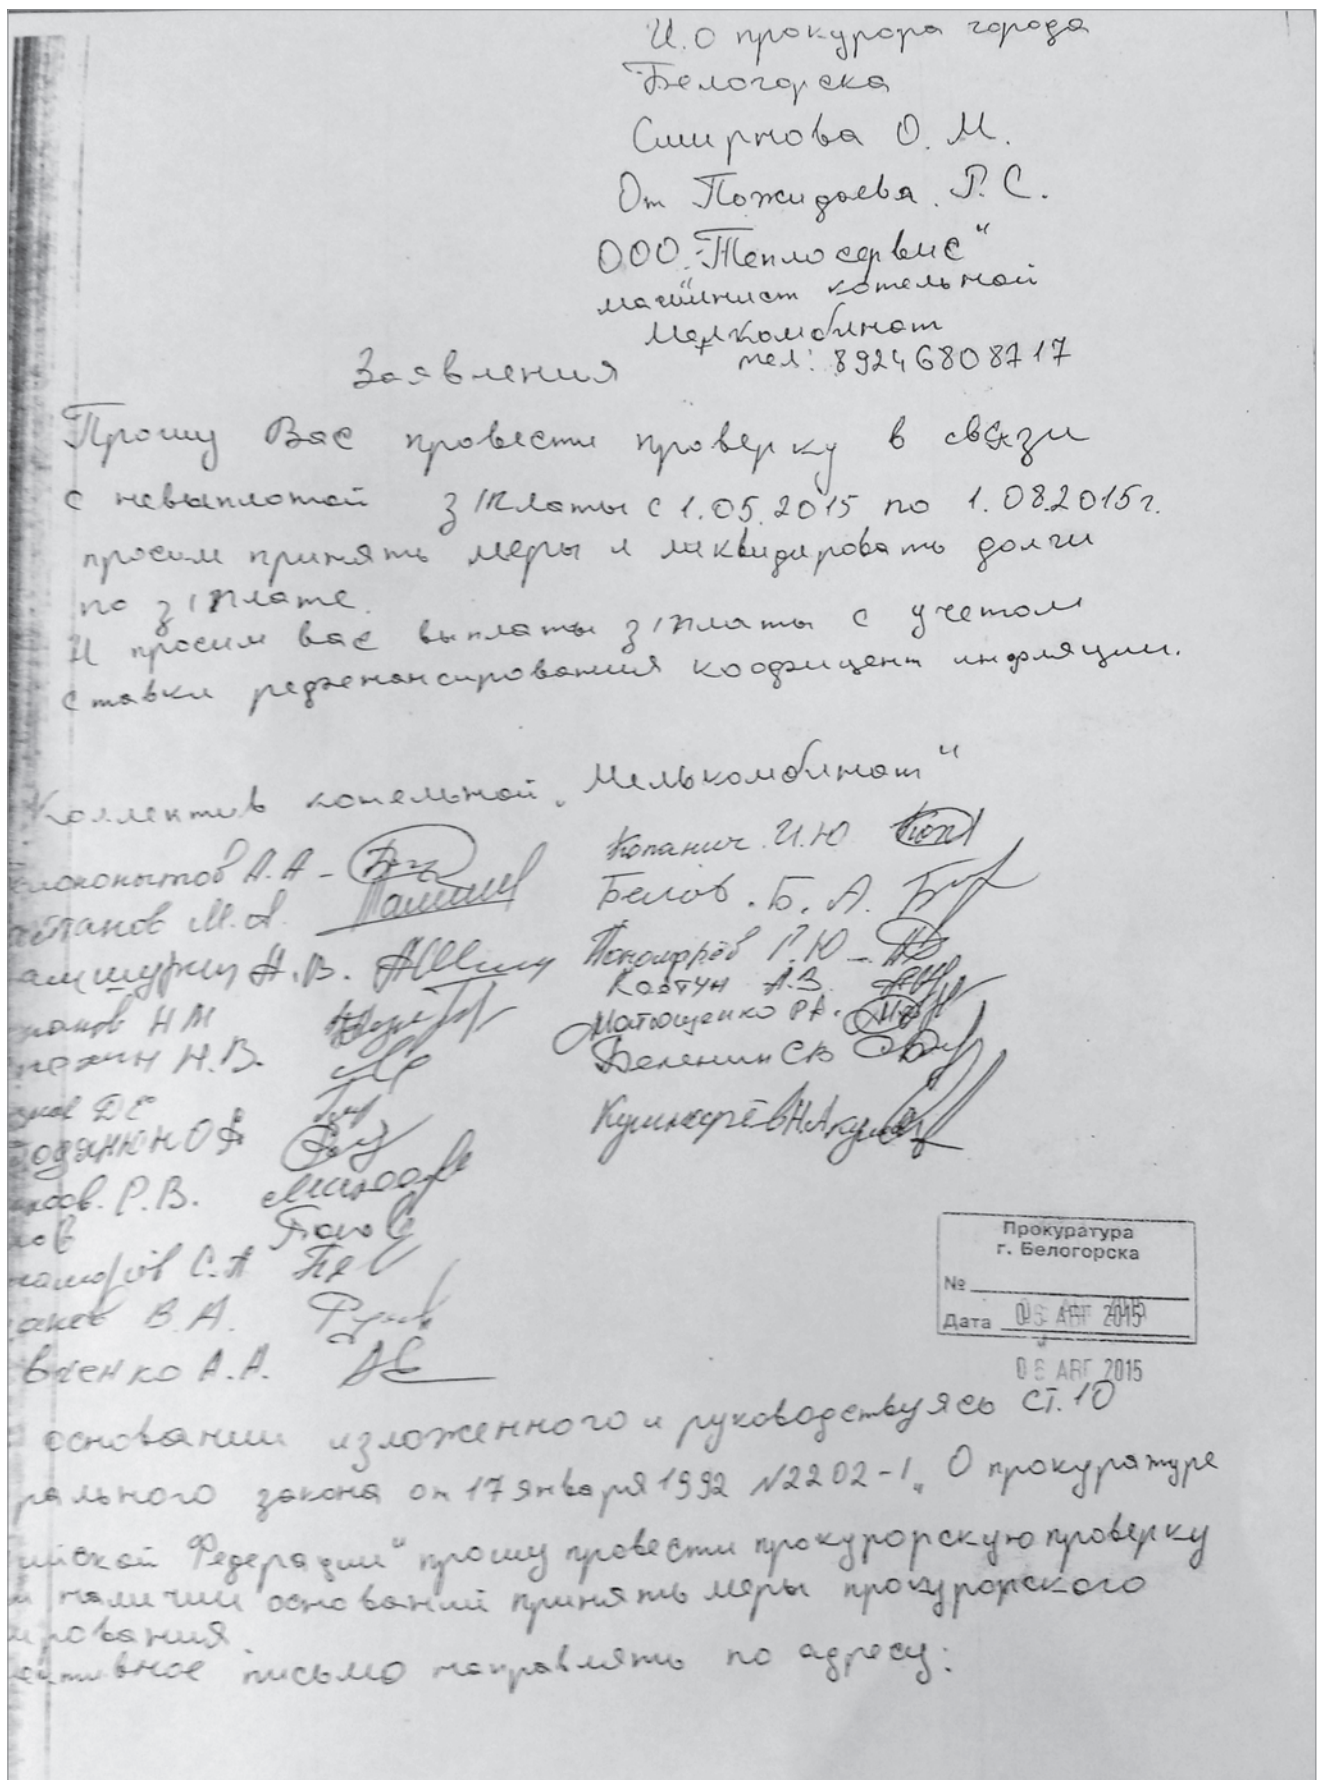 И.О прокурора города
Белогорска
Смирнова О. М.
От Пожидаева. Г. С.
ООО "Теплосервис"
машинист котельной
Мелкомбинат
тел: 89246808717
Заявления
Прошу Вас провести проверку в связи
с невыплатой з/платы с 1.05.2015 по 1.08.2015г.
просим принять меры и ликвидировать долги
по з/плате.
И просим вас выплаты з/платы с учетом
ставки рефенансирования коофицент инфляции.
Коллектив котельной "Мелькомбинат"
А.А - Копанич И.Ю
М.А. Белов. Б. А.
Н.В. Пономрёв Г.Ю -
Н М Ковтун А.В.
Н.В. Матющенко Р.А.
Д Е Беленин С В
Кушнарёв Н А
Р.В.
С.А
В.А.
вченко А.А.
Прокуратура
г. Белогорска
№
Дата 06 АВГ 2015
06 АВГ 2015
основании изложенного и руководствуясь ст. 10
рального закона от 17 января 1992 №2202-1 "О прокуратуре
ийской Федерации" прошу провести прокурорскую проверку
и наличии оснований принять меры прокурорского
ирования.
письмо направлять по адресу: